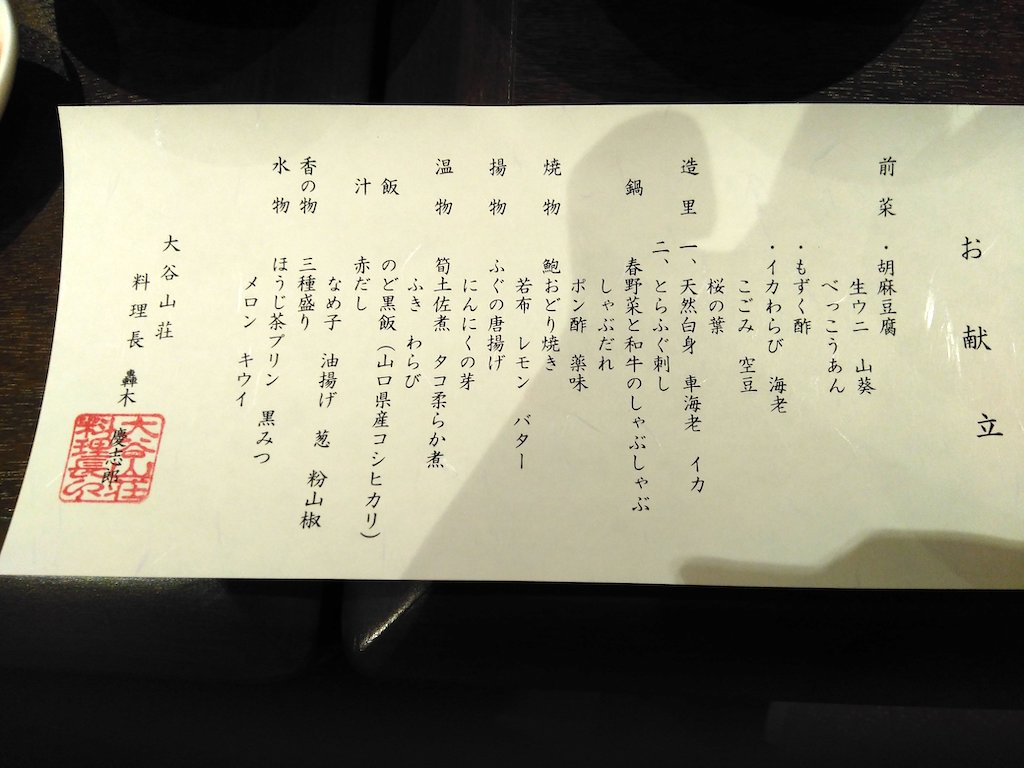 お献立
前菜 ・胡麻豆腐
生ウニ 山葵
べっこうあん
・もずく酢
・イカわらび 海老
こごみ 空豆
桜の葉
造里 一、天然白身 車海老 イカ
二、とらふぐ刺し
鍋 春野菜と和牛のしゃぶしゃぶ
しゃぶだれ
ポン酢 薬味
焼物 鮑おどり焼き
若布 レモン バター
揚物 ふぐの唐揚げ
にんにくの芽
温物 筍土佐煮 タコ柔らか煮
ふき わらび
飯 のど黒飯(山口県産コシヒカリ)
汁 赤だし
なめ子 油揚げ 葱 粉山椒
香の物 三種盛り
水物 ほうじ茶プリン 黒みつ
メロン キウイ
大谷山荘
料理長 轟木 慶志郎
大谷山荘
料理長